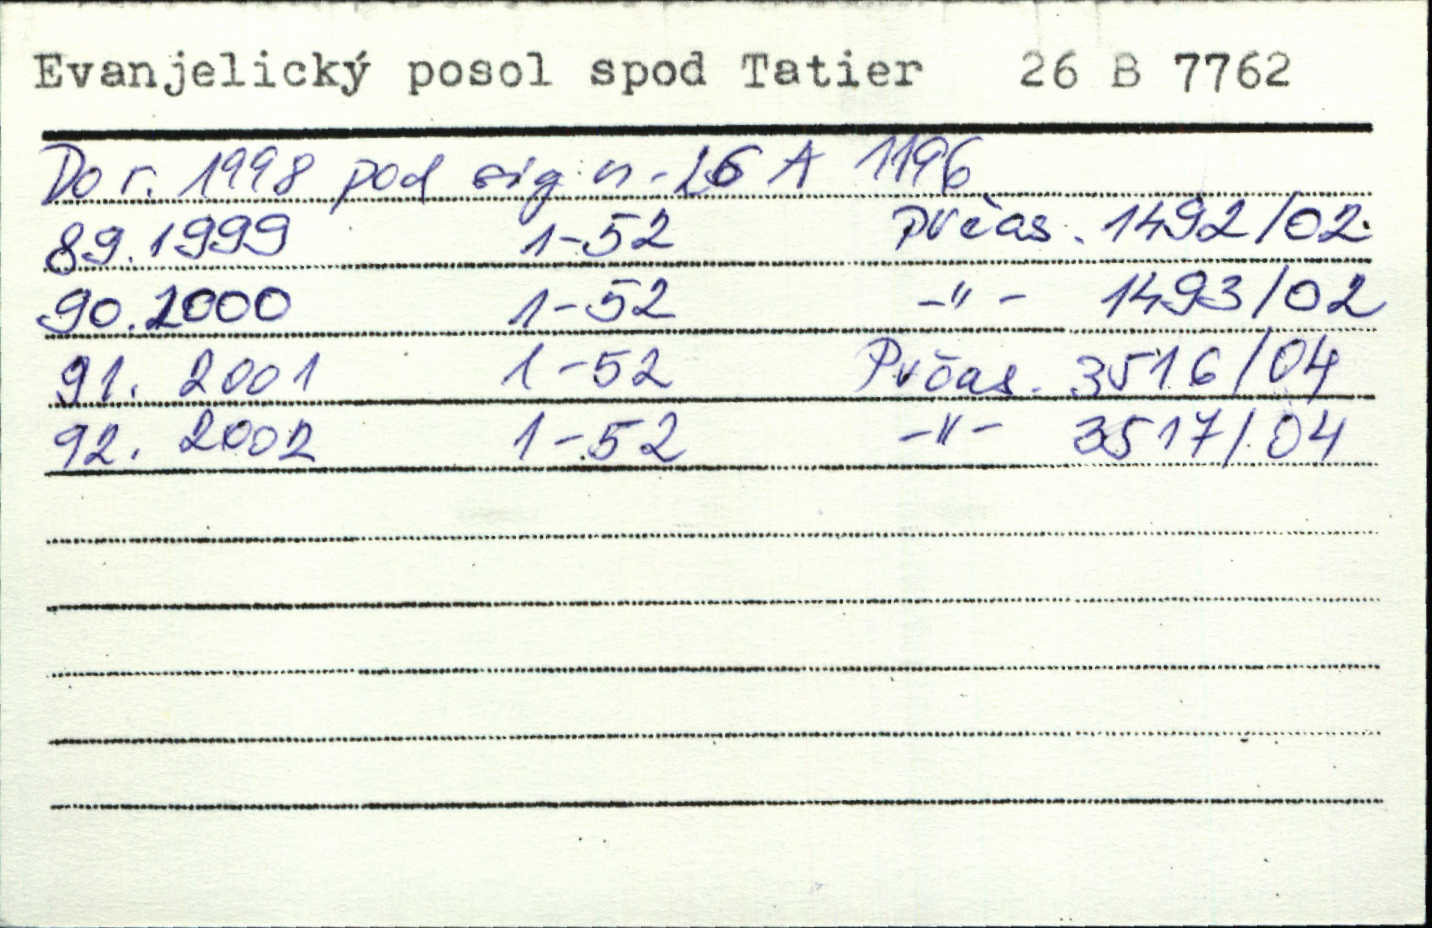 Evanjelický posol spod Tatier 26 B 7762
Do r. 1998 pod sign. 26 A 1196
89.1999 1-52 Prčas. 1492/02
90.2000 1-52 -"- 1493/02
91. 2001 1-52 Prčas. 3516/04
92. 2002 1-52 -"- 3517/04